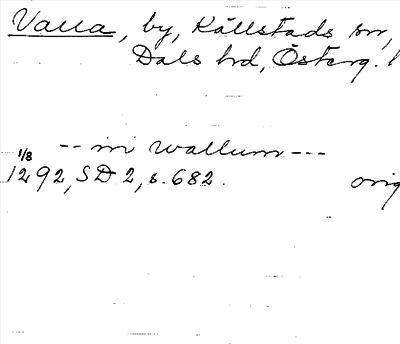 Valla, by, Källstads sn,
Dals hd, Österg. l
-- in wallum ---
1/8
1292, SD 2, s. 682. orig